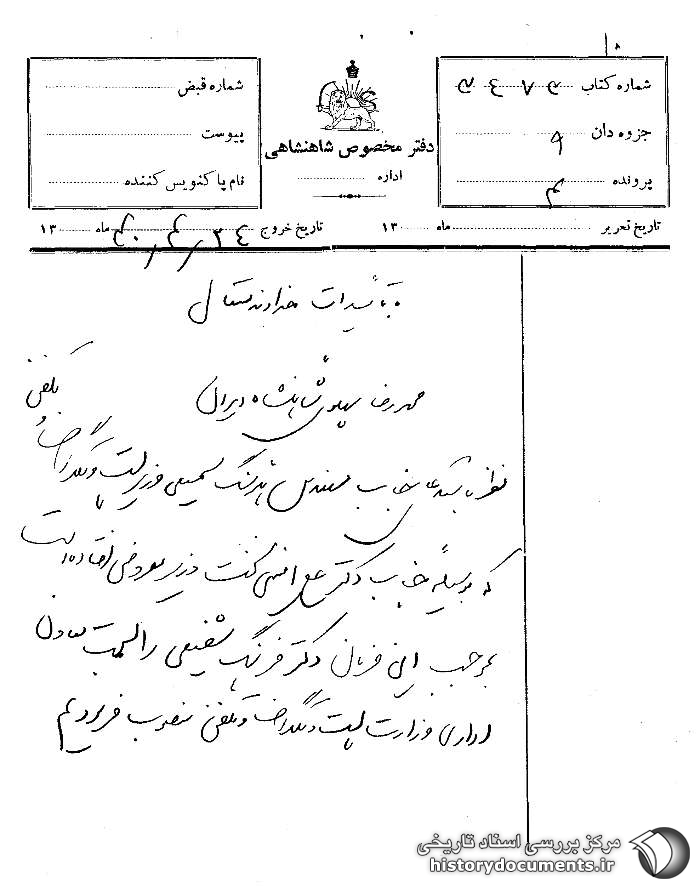 شماره کتاب
جزوه دان ۹
پرونده
دفتر مخصوص شاهنشاهی
اداره
شماره قبض
پیوست
نام پاکنویس کننده
تاریخ تحریر ماه ۱۳۰
تاریخ خروج ۲۴ ماه ۱۳
با تأئیدات خداوند متعال
محمدرضا پهلوی شاهنشاه ایران
نظر باستدعای جناب مهندس هوشنگ سمیعی وزیر پست و تلگراف و
تلفن
که بوسیله جناب دکتر علی امینی نخست وزیر بعرض افتاده است
بموجب این فرمان دکتر فرهنگ شفیعی را بسمت معاون
اداری وزارت پست و تلگراف و تلفن منصوب فرمودیم
مرکز بررسی اسناد تاریخی
historydocuments.ir